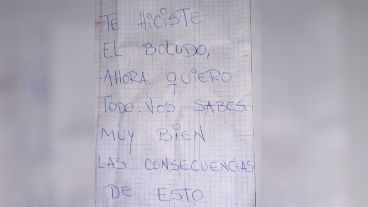 TE HICISTE
EL BOLUDO,
AHORA QUIERO
TODO. VOS SABES
MUY BIEN
LAS CONSECUENCIAS
DE ESTO